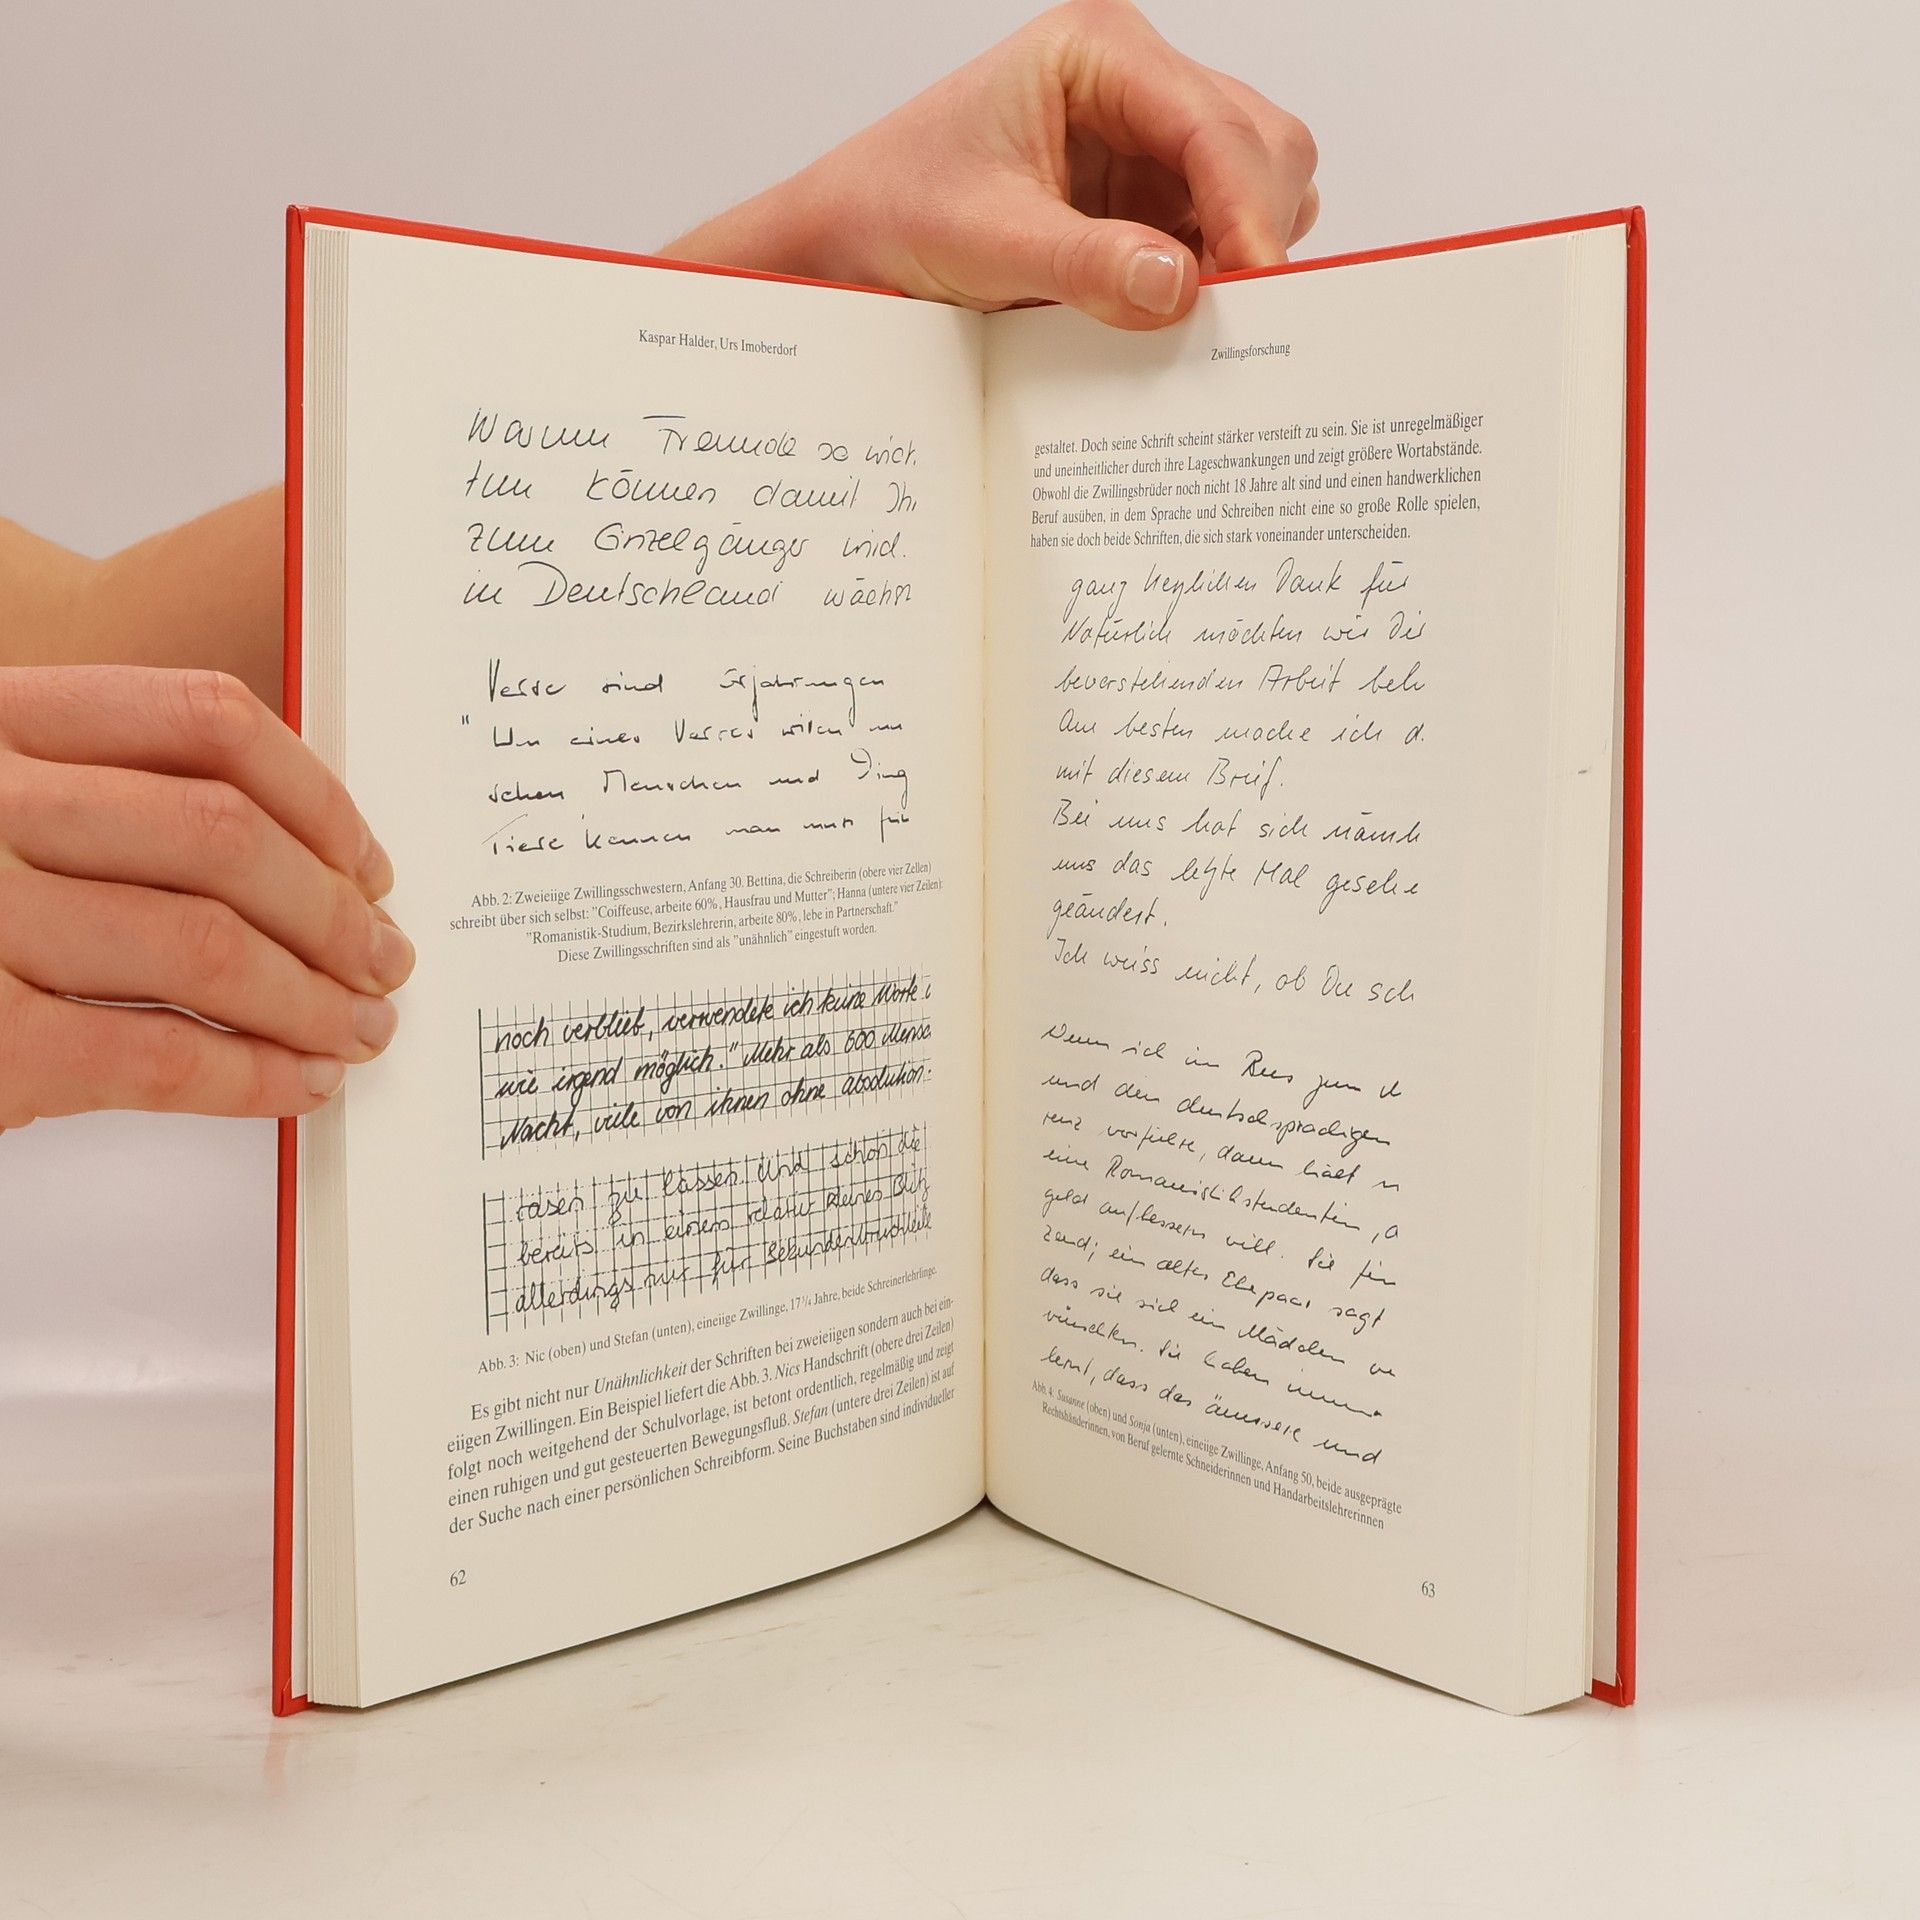 Kaspar Halder, Urs Imoberdorf
Warum Freunde so wich
tun können damit Ihr
zum Einzelgänger wird.
in Deutschland wächst
Verse sind Erfahrungen
" Um eines Verses willen mu
sehen Menschen und Ding
Tiere kennen man muss füh
Abb. 2: Zweieiige Zwillingsschwestern, Anfang 30. Bettina, die Schreiberin (obere vier Zeilen)
schreibt über sich selbst: "Coiffeuse, arbeite 60%, Hausfrau und Mutter"; Hanna (untere vier Zeilen):
"Romanistik-Studium, Bezirkslehrerin, arbeite 80%, lebe in Partnerschaft."
Diese Zwillingsschriften sind als "unähnlich" eingestuft worden.
noch verblieb, verwendete ich keine Worte
wie irgend möglich." Mehr als 600 Mensc
Nacht, viele von ihnen ohne absolution.
rasen zu lassen. Und schon die
bereits in einem relativ kleines Blitz
allerdings nur für Sekundenbruchteile
Abb. 3: Nic (oben) und Stefan (unten), eineiige Zwillinge, 17¼ Jahre, beide Schreinerlehrlinge.
Es gibt nicht nur Unähnlichkeit der Schriften bei zweieiigen sondern auch bei ein-
eiigen Zwillingen. Ein Beispiel liefert die Abb. 3. Nics Handschrift (obere drei Zeilen)
folgt noch weitgehend der Schulvorlage, ist betont ordentlich, regelmäßig und zeigt
einen ruhigen und gut gesteuerten Bewegungsfluß. Stefan (untere drei Zeilen) ist auf
der Suche nach einer persönlichen Schreibform. Seine Buchstaben sind individueller
62
Zwillingsforschung
gestaltet. Doch seine Schrift scheint stärker versteift zu sein. Sie ist unregelmäßiger
und uneinheitlicher durch ihre Lageschwankungen und zeigt größere Wortabstände.
Obwohl die Zwillingsbrüder noch nicht 18 Jahre alt sind und einen handwerklichen
Beruf ausüben, in dem Sprache und Schreiben nicht eine so große Rolle spielen,
haben sie doch beide Schriften, die sich stark voneinander unterscheiden.
ganz herzlichen Dank für
Natürlich möchten wir Dir
bevorstehenden Arbeit beh
Am besten mache ich d.
mit diesem Brief.
Bei uns hat sich nämli
uns das letzte Mal gesehe
geändert.
Ich weiss nicht, ob Du sch
Wenn ich im Bus zum
und den deutschsprachigen
renz vorführe, dann hält m
eine Romanistikstudentin,
geld aufbessern will. Sie fin
zend; ein altes Ehepaar sagt
dass sie sich ein Mädchen
wünschten. Sie haben immer
lernt, dass das äussere und
Abb. 4: Susanne (oben) und Sonja (unten), eineiige Zwillinge, Anfang 50, beide ausgeprägte
Rechtshänderinnen, von Beruf gelernte Schneiderinnen und Handarbeitslehrerinnen
63